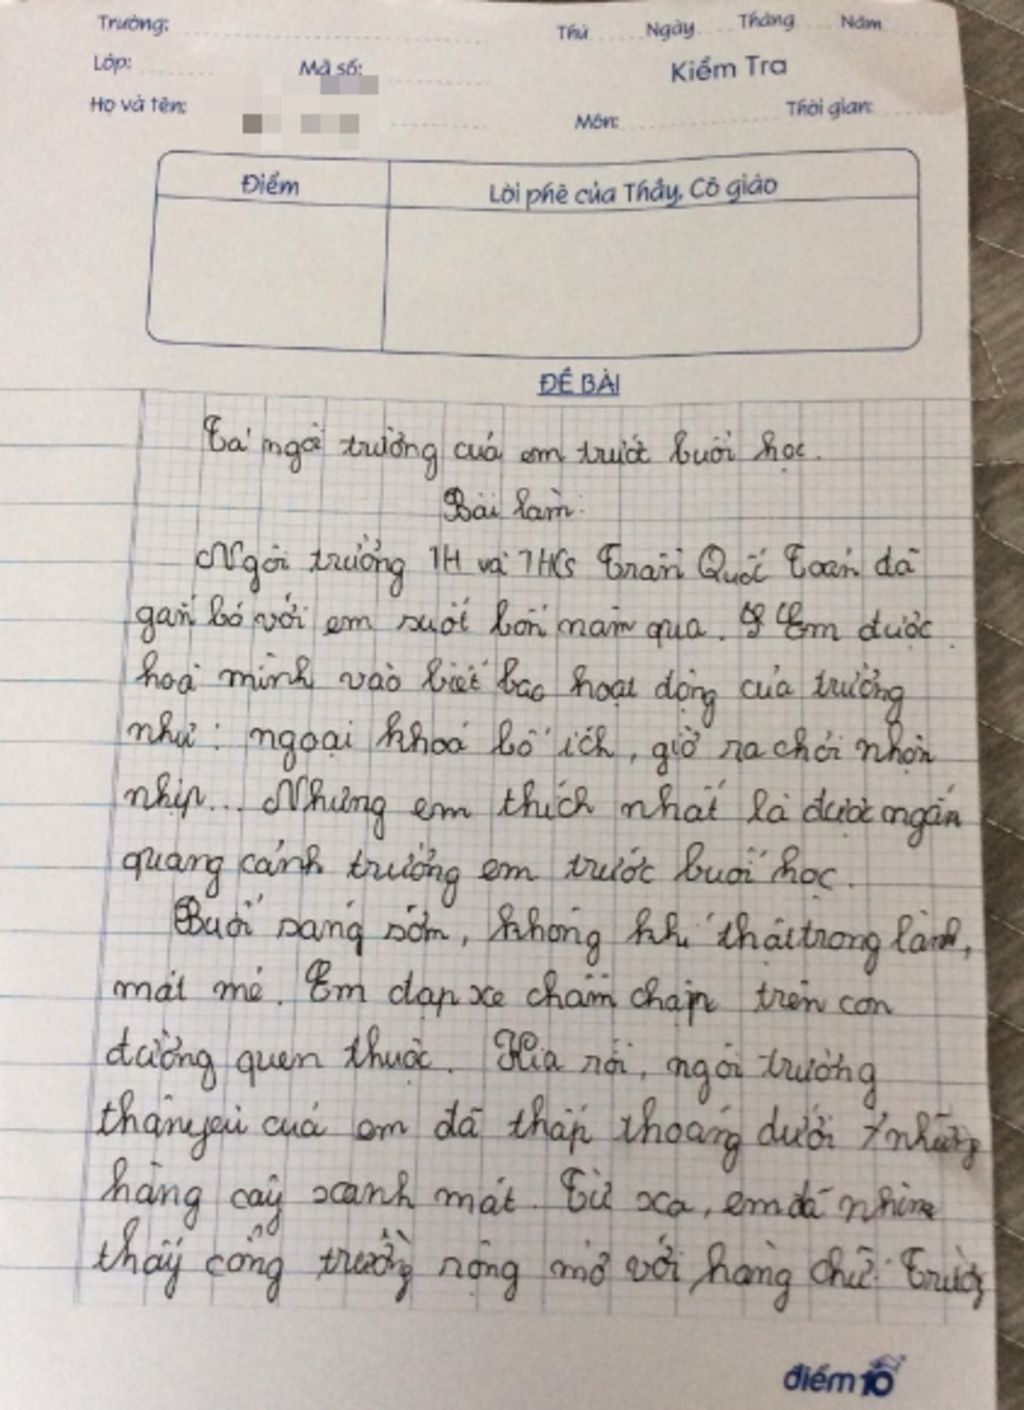 Trường:
Thứ Ngày Tháng Năm
Lớp: Mã số:
Kiểm Tra
Họ và tên:
Môn: Thời gian:
Điểm
Lời phê của Thầy, Cô giáo
ĐỀ BÀI
Tả ngôi trường của em trước buổi học.
Bài làm:
Ngôi trường TH và THCS Trần Quốc Toản đã
gắn bó với em suốt bốn năm qua. Em được
hoà mình vào biết bao hoạt động của trường
như: ngoại khoá bổ ích, giờ ra chơi nhộn
nhịp... Nhưng em thích nhất là được ngắm
quang cảnh trường em trước buổi học.
Buổi sáng sớm, không khí thật trong lành,
mát mẻ. Em đạp xe chầm chậm trên con
đường quen thuộc. Kia rồi, ngôi trường
thân yêu của em đã thấp thoáng dưới những
hàng cây xanh mát. Từ xa, em đã nhìn
thấy cổng trường rộng mở với hàng chữ: Trường
điểm 10